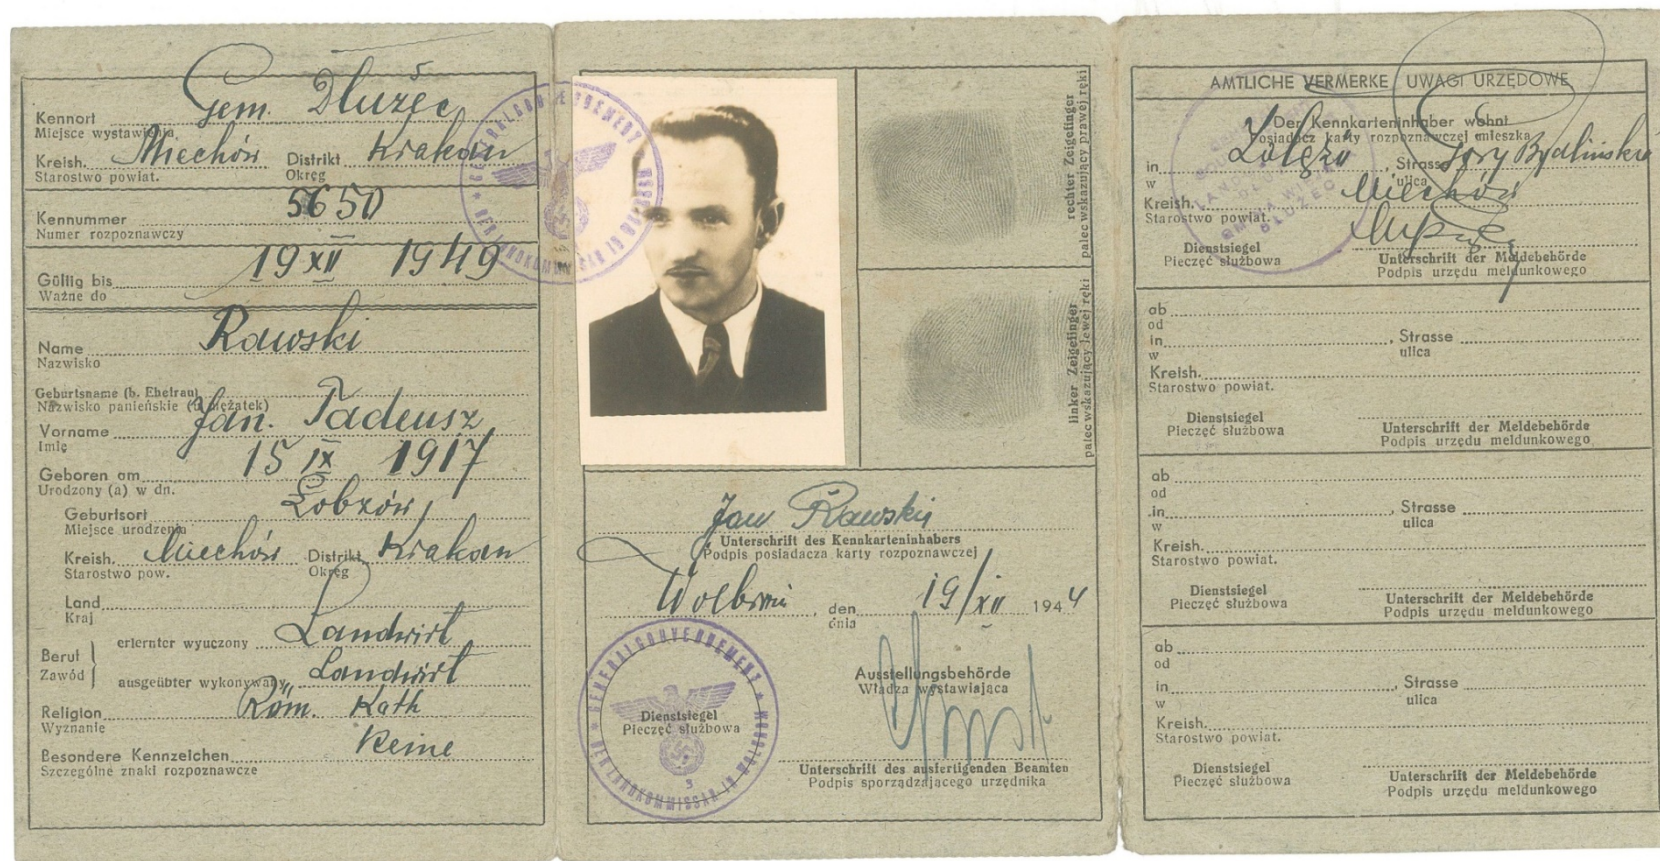 Kennort Gem. Dłużec
Miejsce wystawienia
Kreish. Miechów Distrikt Krakau
Starostwo powiat. Okręg
Kennummer 5650
Numer rozpoznawczy
Gültig bis 19 XII 1949
Ważne do
Name Rawski
Nazwisko
Geburtsname (b. Ehefrau)
Nazwisko panieńskie (u mężatek)
Vorname Jan. Tadeusz
Imię
Geboren am 15 IX 1917
Urodzony (a) w dn.
Geburtsort Łobzów
Miejsce urodzenia
Kreish. Miechów Distrikt Krakau
Starostwo pow. Okręg
Land
Kraj
Beruf
Zawód
erlernter wyuczony Landwirt
ausgeübter wykonywany Landwirt
Religion Röm. Kath
Wyznanie
Besondere Kennzeichen Keine
Szczególne znaki rozpoznawcze
GENERALGOUVERNEMENT
DER LANDKOMMISSAR IN WOLBROM
rechter Zeigefinger
palec wskazujący prawej ręki
linker Zeigefinger
palec wskazujący lewej ręki
Jan Rawski
Unterschrift des Kennkarteninhabers
Podpis posiadacza karty rozpoznawczej
den 19/XII 1944
dnia
GENERALGOUVERNEMENT
DER LANDKOMMISSAR IN WOLBROM
3
Dienstsiegel
Pieczęć służbowa
Ausstellungsbehörde
Władza wystawiająca
Unterschrift des ausfertigenden Beamten
Podpis sporządzającego urzędnika
AMTLICHE VERMERKE UWAGI URZĘDOWE
Der Kennkarteninhaber wohnt
Posiadacz karty rozpoznawczej mieszka
in , Strasse
w ulica
Kreish. Miechów
Starostwo powiat.
Dienstsiegel
Pieczęć służbowa
Unterschrift der Meldebehörde
Podpis urzędu meldunkowego
ab
od
in , Strasse
w ulica
Kreish.
Starostwo powiat.
Dienstsiegel
Pieczęć służbowa
Unterschrift der Meldebehörde
Podpis urzędu meldunkowego
ab
od
in , Strasse
w ulica
Kreish.
Starostwo powiat.
Dienstsiegel
Pieczęć służbowa
Unterschrift der Meldebehörde
Podpis urzędu meldunkowego
ab
od
in , Strasse
w ulica
Kreish.
Starostwo powiat.
Dienstsiegel
Pieczęć służbowa
Unterschrift der Meldebehörde
Podpis urzędu meldunkowego